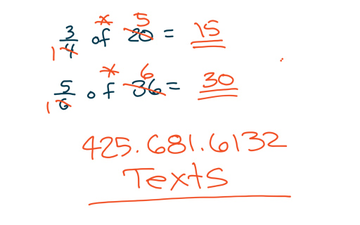 3/4 of 20 = 15
× 5
1
5/6 of 36 = 30
× 6
1
425.681.6132
Texts